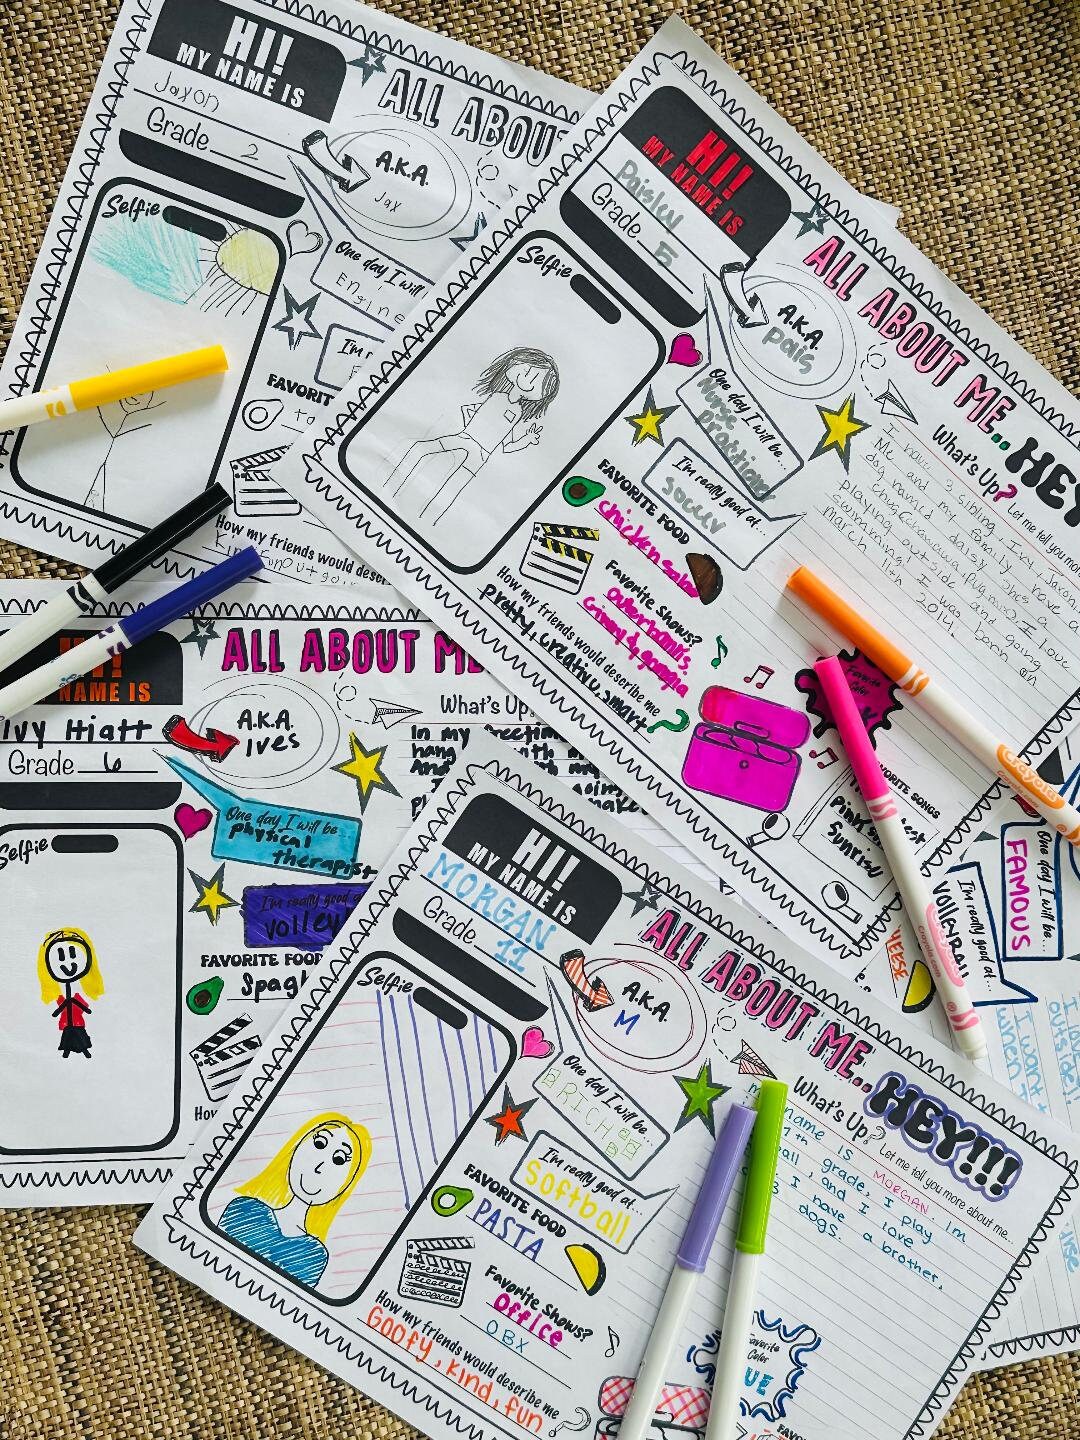 HI!
MY NAME IS
Jaxon
Grade 2
Selfie
ALL ABOU
A.K.A.
Jax
One day I will
Engine
I'm r
FAVORIT
How my friends would descr
Kind Fun Out goi
HI!
MY NAME IS
Paisley
Grade 5
Selfie
ALL ABOUT ME... HEY
A.K.A.
Pais
One day I will be...
Nurse
Practioner
I'm really good at...
soccer
FAVORITE FOOD
chicken salad
Favorite Shows?
outerbanks
Ginny & gorgia
How my friends would describe me
pretty, creative, smart
What's Up? Let me tell you more
I have 3 sibling Ivy, Jaxon,
Me and my family have a
dog named daisy she's a
playing outside and going
swimming! I was born on
march 11th 2014.
Favorite
Color
FAVORITE SONGS
Pink
Sunrise
HI!
NAME IS
Ivy Hiatt
Grade 6
Selfie
ALL ABOUT ME
A.K.A.
Ives
One day I will be
physical
therapist
I'm really good a
volley
FAVORITE FOOD
Spag
How
What's Up
In my freetim
hang
And
HI!
MY NAME IS
MORGAN
Grade 11
Selfie
ALL ABOUT ME... HEY!!!
A.K.A.
M
One day I will be...
RICH
I'm really good at...
Softball
FAVORITE FOOD
PASTA
Favorite Shows?
Office
OBX
How my friends would describe me
Goofy, kind, fun
What's Up? Let me tell you more about me...
name is MORGAN. Im
11th grade, I play
ball, and I love
I have a brother,
3 dogs.
Favorite
Color
UE
One day I will be...
FAMOUS
I'm really good at...
VOLLEYBALL
I want t
when I
Crayola
Crayola